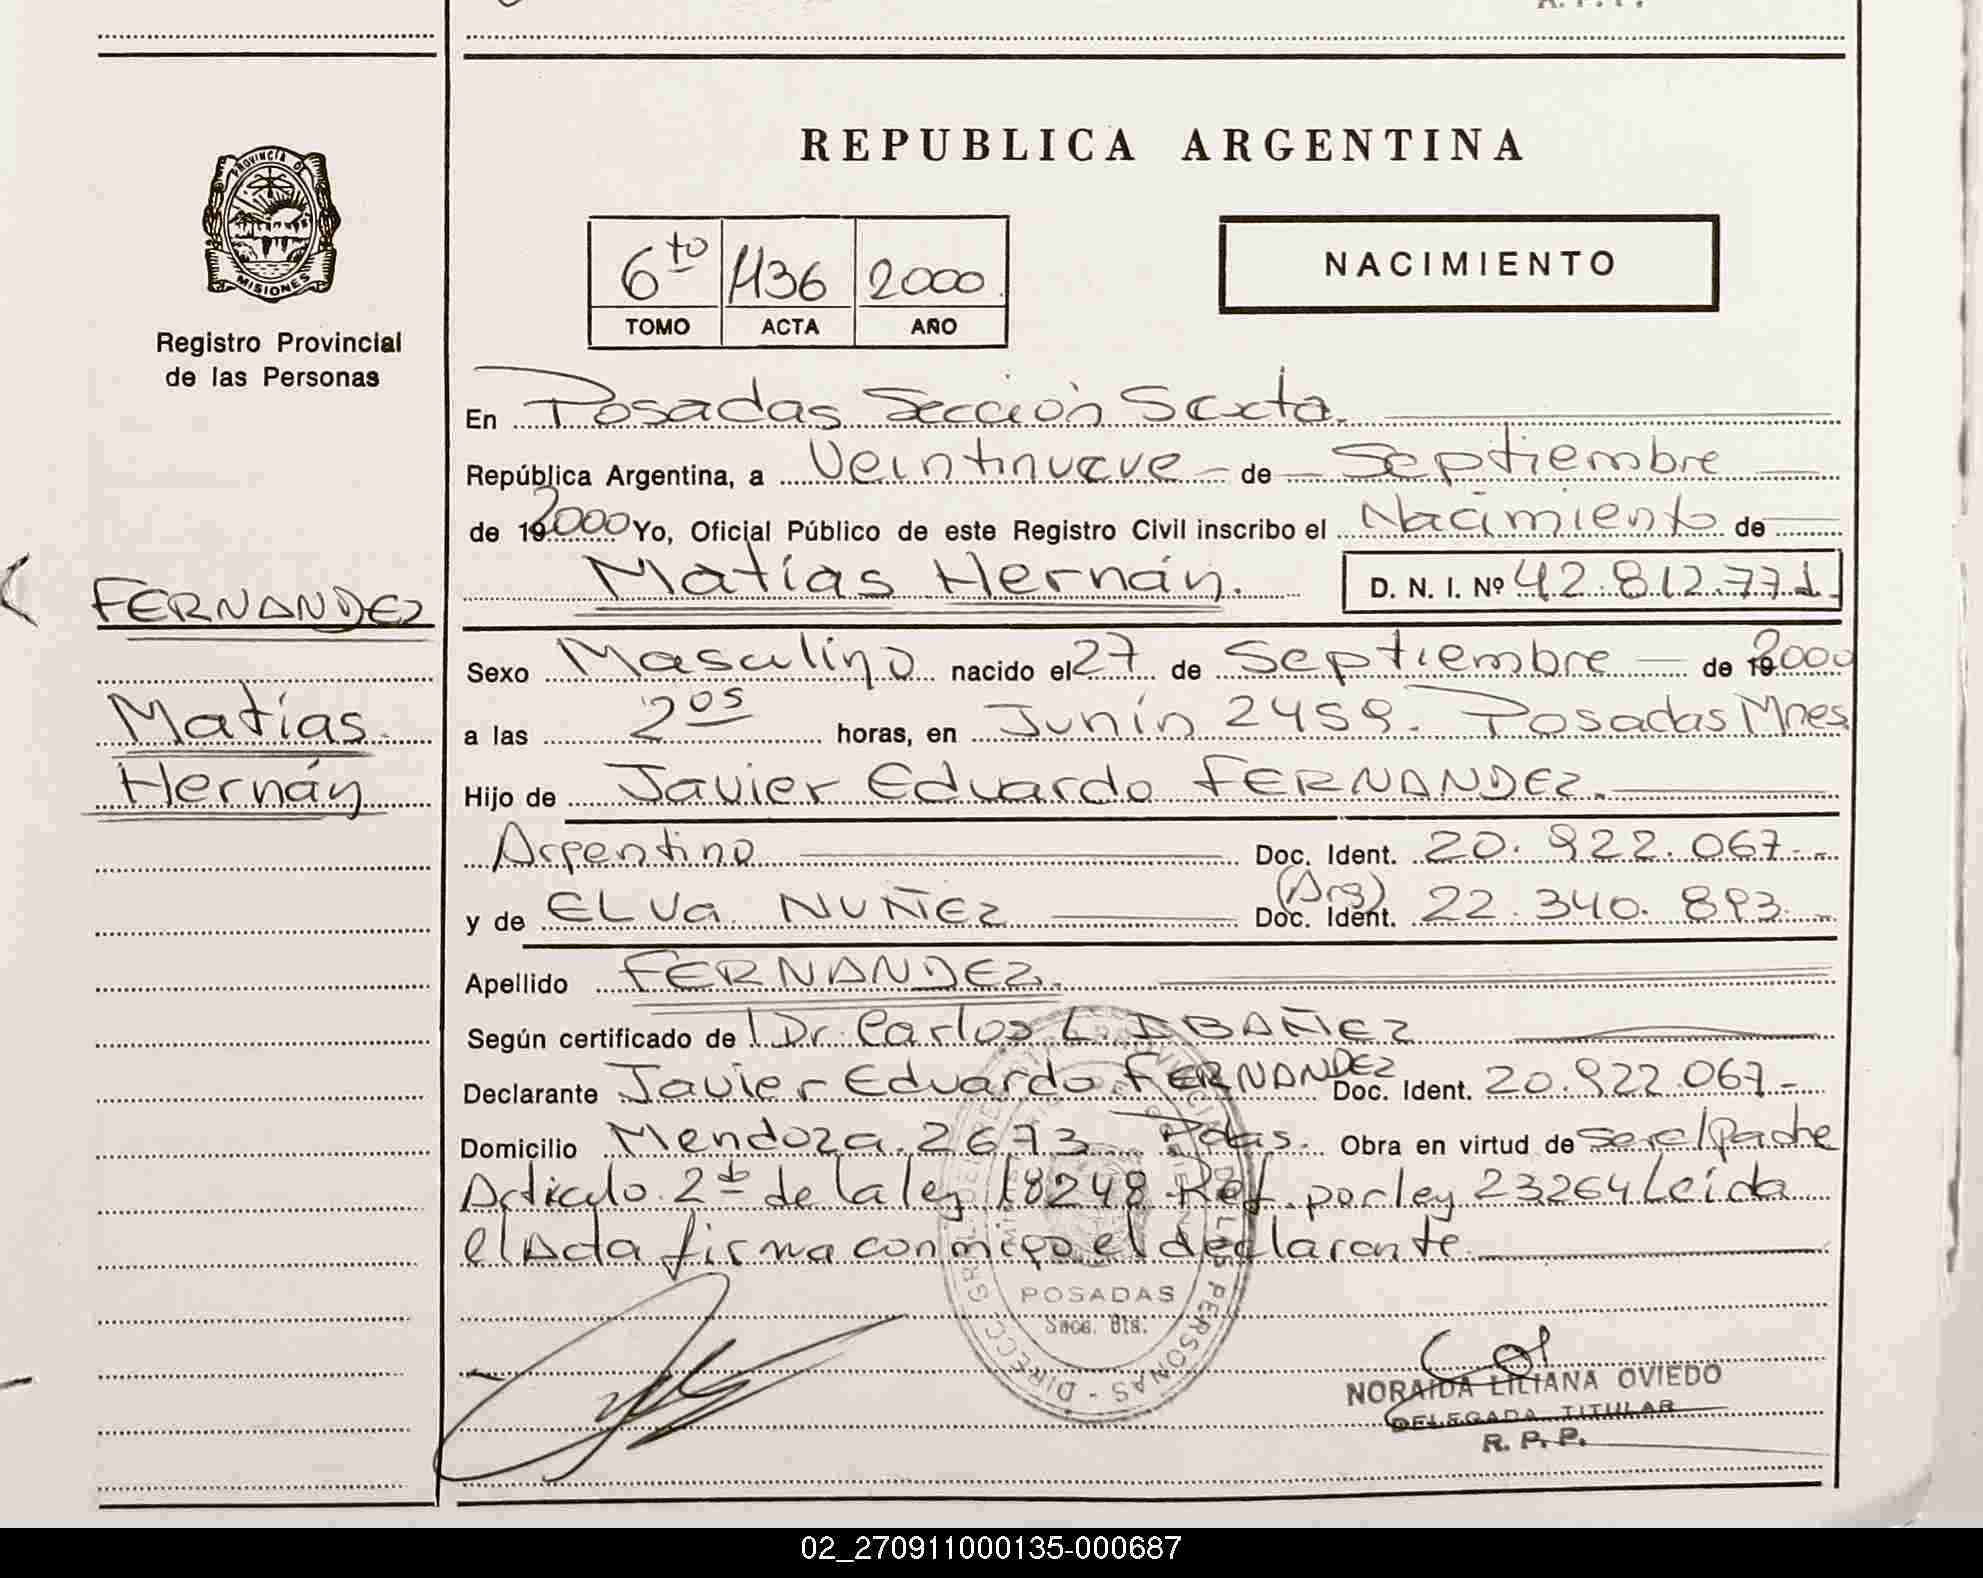 REPUBLICA ARGENTINA
PROVINCIA DE
MISIONES
Registro Provincial
de las Personas
6to 1136 2000
TOMO ACTA AÑO
NACIMIENTO
En Posadas Sección Sexta.
República Argentina, a Veintinueve de Septiembre
de 192000 Yo, Oficial Público de este Registro Civil inscribo el Nacimiento de
Matías Hernán. D. N. I. Nº 42.812.771
FERNANDEZ
Matías
Hernán
Sexo Masculino nacido el 27 de Septiembre de 192000
a las 2 05 horas, en Junín 2459. Posadas Mnes
Hijo de Javier Eduardo FERNANDEZ.
Argentino Doc. Ident. 20.922.067.-
y de ELVa NUÑEZ (Arg) Doc. Ident. 22.340.893.-
Apellido FERNANDEZ.
Según certificado de Dr. Carlos L. IBAÑEZ
Declarante Javier Eduardo FERNANDEZ Doc. Ident. 20.922.067.-
Domicilio Mendoza 2673 Pdas. Obra en virtud de ser el padre
Articulo 2do de la ley 18248 Ref. por ley 23264 Leida
el Acta firma conmigo el declarante
POSADAS
NORAIDA LILIANA OVIEDO
DELEGADA TITULAR
R. P. P.
02_270911000135-000687